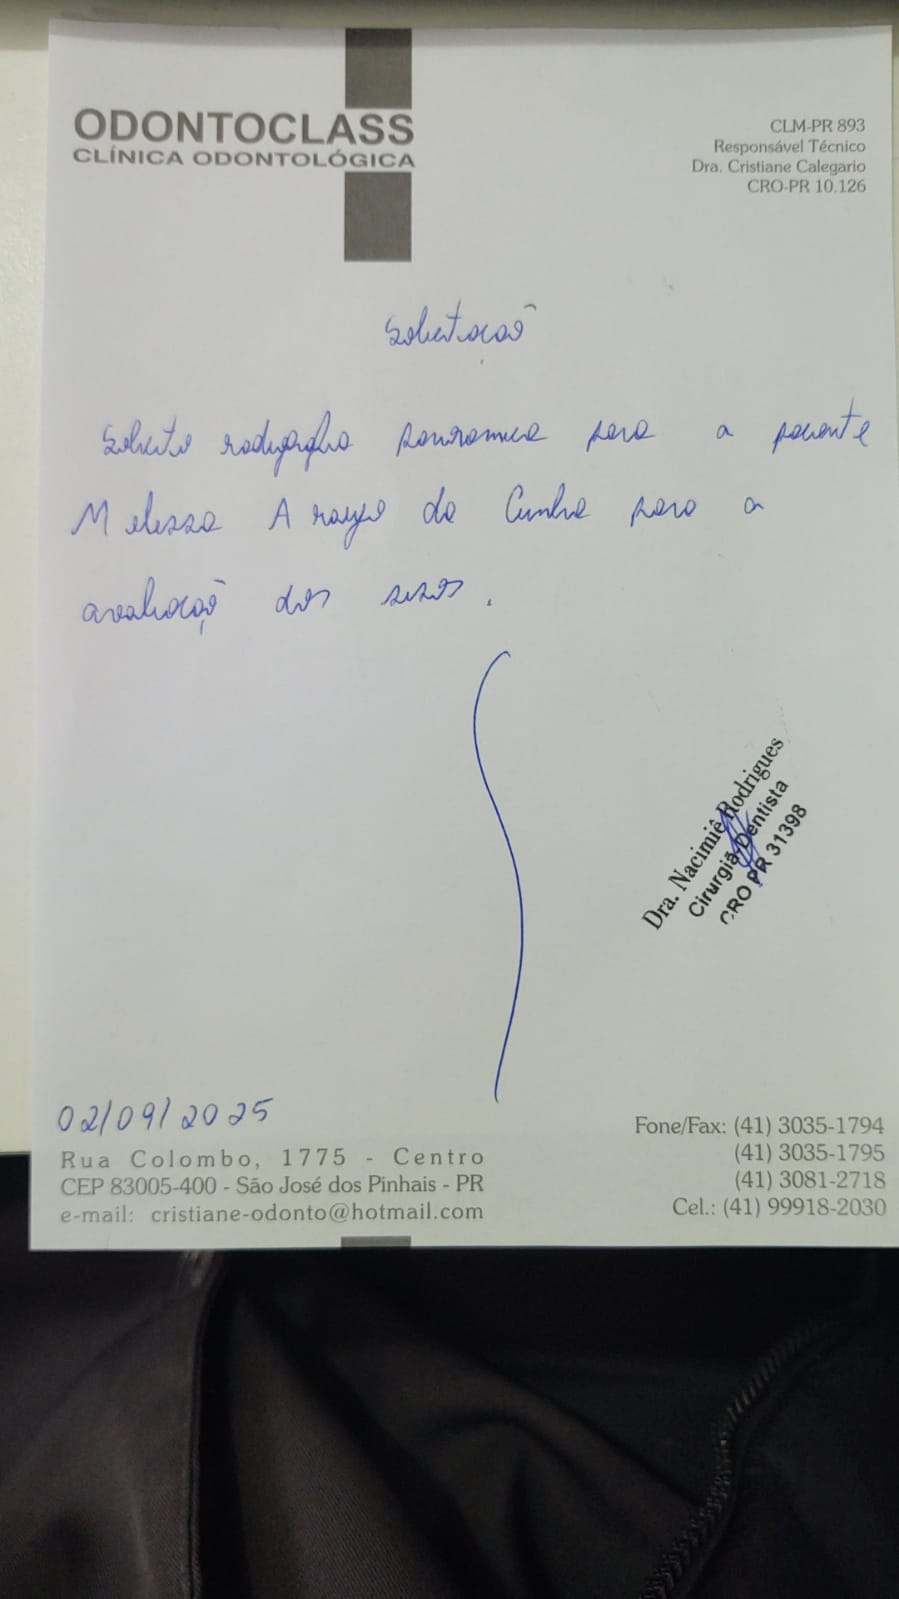 ODONTOCLASS
CLÍNICA ODONTOLÓGICA
CLM-PR 893
Responsável Técnico
Dra. Cristiane Calegario
CRO-PR 10.126
Solicitação
Solicito radiografia panoramica para a paciente
Melissa Araujo da Cunha para a
avaliação dos sisos.
Dra. Nacimiê Rodrigues
Cirurgiã-Dentista
CRO PR 31398
02/09/2025
Rua Colombo, 1775 - Centro
CEP 83005-400 - São José dos Pinhais - PR
e-mail: cristiane-odonto@hotmail.com
Fone/Fax: (41) 3035-1794
(41) 3035-1795
(41) 3081-2718
Cel.: (41) 99918-2030